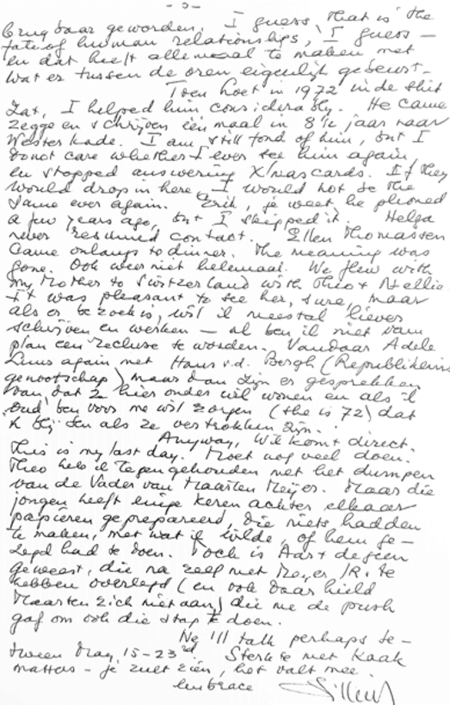 - 5 -
brugbaar geworden, I guess, that is the
fate of human relationships, I guess -
en dat heeft allemaal te maken met
wat er tussen de oren eigenlijk gebeurt -
Toen Loet in 1972 in de shit
zat, I helped him considerably. He came
zegge en schrijven één maal in 8½ jaar naar
Westerkade. I am still fond of him, but I
do not care whether I ever see him again,
en stopped answering X/mas cards. If they
would drop in here, I would not be the
same ever again. Erik, je weet he phoned
a few years ago, but I skipped it. Helga
never resumed contact. Ellen Thomassen
came onlangs to dinner. The meaning was
gone. Ook weer niet helemaal. We flew with
my Mother to Switzerland with Theo + Nellie.
It was pleasant to see her, sure, maar
als er bezoek is, wil ik meestal liever
schrijven en werken - al ben ik niet van
plan een recluse te worden. Vandaar Adèle
again met Hans v.d. Bergh (Republikeins
genootschap) maar dan zijn er gesprekken
van dat ze hier onder wil wonen en als ik
oud ben voor me wil zorgen (she is 72) dat
ik blij ben als ze vertrokken zijn.
Anyway, Wil komt direct.
This is my last day. Moet nog veel doen.
Theo heb ik tegengehouden met het dumpen
van de Vader van Maarten Meijer. Maar die
jongen heeft enige keren achter elkaar
papieren geprepareerd, die niets hadden
te maken, met wat ik wilde, of hem ge-
zegd had te doen. Toch is Aart degeen
geweest, die na zelf met Meyer Sr. te
hebben overlegd (en ook daar hield
Maarten zich niet aan) die me de push
gaf om ook die stap te doen.
No I'll talk perhaps be-
tween May 15-23rd. Sterkte met Kaak
matters - je zult zien, het valt mee.
Embrace
Willem